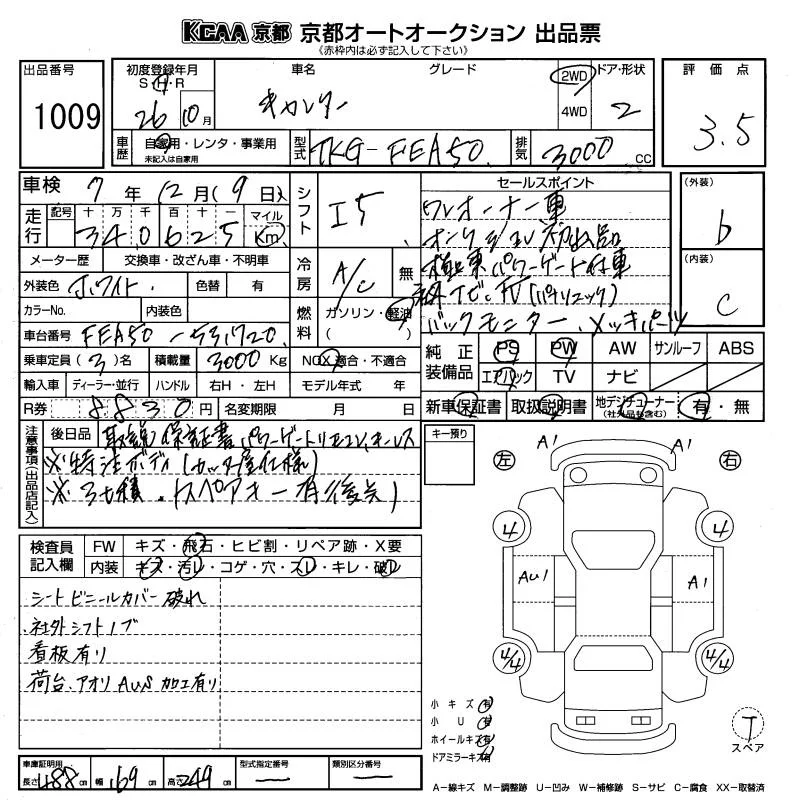 KCAA 京都 京都オートオークション 出品票
《赤枠内は必ず記入して下さい》
出品番号 1009
初度登録年月 S・H・R 26 10月
車名 キャンター グレード
2WD 4WD
ドア・形状 2
評価点 3.5
車歴 自家用・レンタ・事業用
未記入は自家用
型式 TKG-FEA50
排気 3000 CC
車検 7年12月(9日)
シフト I5
走行 記号 十万千百十一 マイル Km
340625
メーター歴 交換車・改ざん車・不明車
外装色 ホワイト 色替 有
カラーNo. 内装色
車台番号 FEA50-531720
乗車定員 (3)名 積載量 3000 Kg
NOX適合・不適合
冷房 A/C 無
燃料 ガソリン・軽油
( )
輸入車 ディーラー・並行 ハンドル 右H・左H モデル年式 年
R券 8830円 名変期限 月 日
セールスポイント
ワンオーナー車
オークション初出品
極東パワーゲート付車
ナビ・TV(パナソニック)
バックモニター、メッキパーツ
(外装) b
(内装) C
純正装備品 PS PW AW サンルーフ ABS
エアバック TV ナビ
新車保証書 取扱説明書 地デジチューナー (社外品も含む) 有・無
注意事項(出品店記入)
後日品 取説 保証書 パワーゲートリモコン、ホールス
※特注ボディ(カッター屋仕様)
※3t積、(スペアキー有後送)
キー残り
検査員記入欄
FW キズ・飛石・ヒビ割・リペア跡・X要
内装 キズ・汚レ・コゲ・穴・スレ・キレ・破レ
シートビニールカバー破れ
社外シフトノブ
看板有り
荷台、アオリ AUS 加工有り
左 A1 A1 右
4 4
AU1 A1
4/4 4/4
小キズ 有
小U 有
ホイールキズ 有
ドアミラーキズ 有
T
スペア
車庫証明用 長さ 488cm 幅 169cm 高さ 249cm
型式指定番号 —
類別区分番号 —
A-線キズ M-調整跡 U-凹み W-補修跡 S-サビ C-腐食 XX-取替済